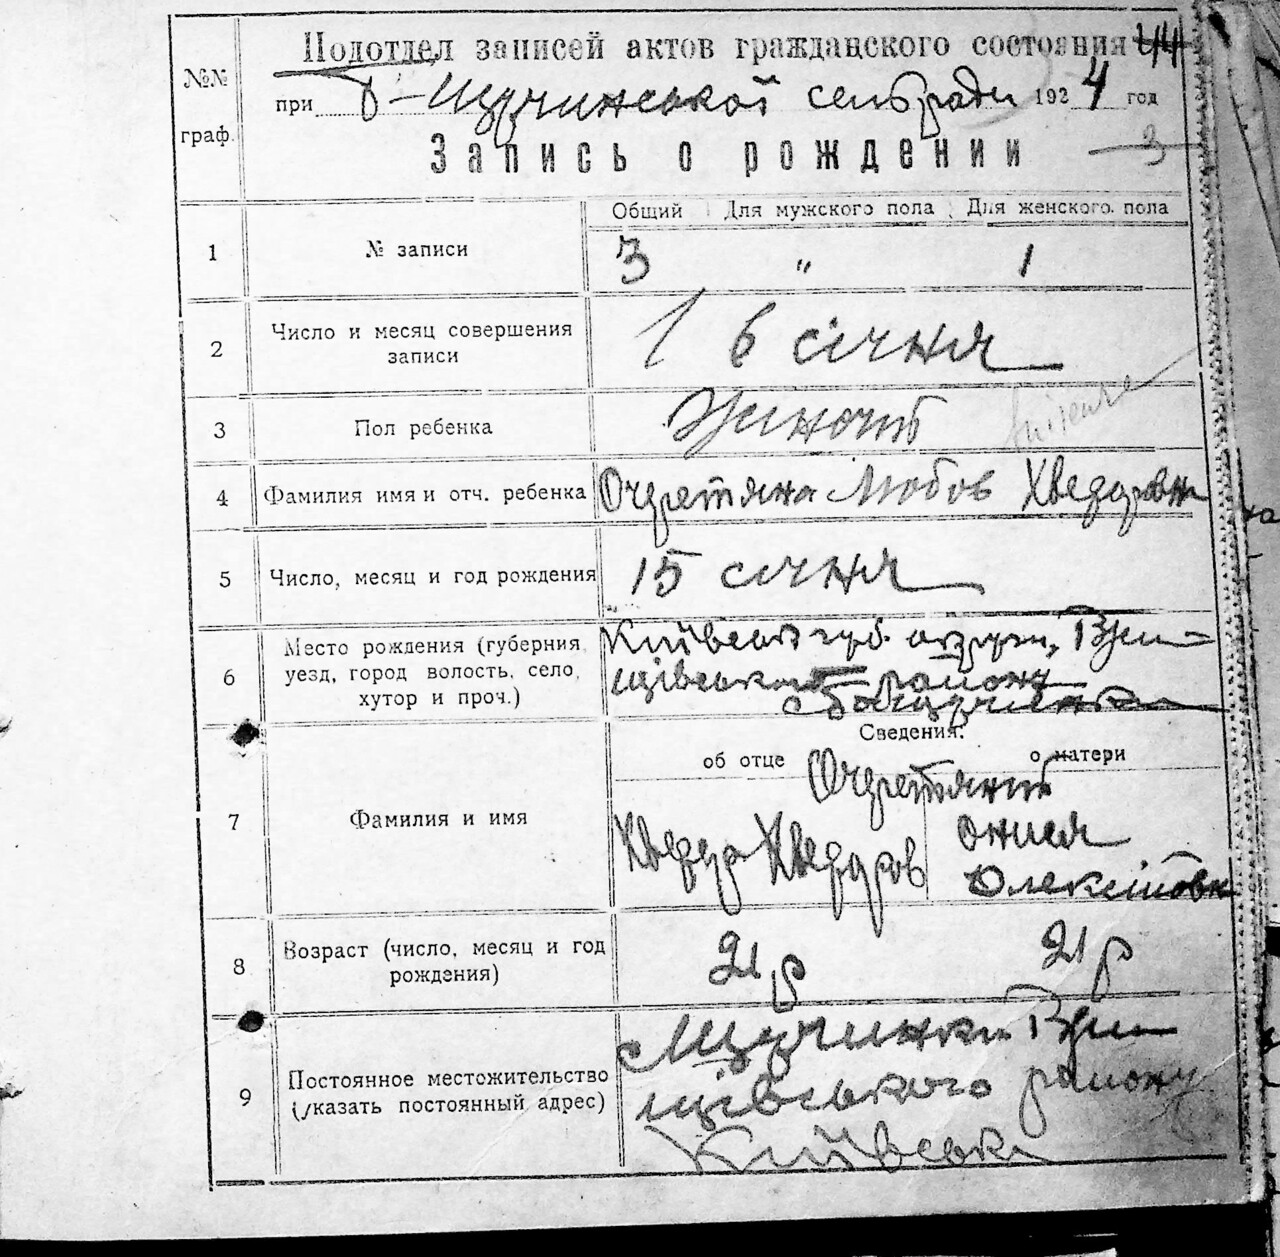 Подотдел записей актов гражданского состояния 44
№№ граф.
при Б-Щучинської сельради 1924 год
3
Запись о рождении
Общий Для мужского пола Для женского пола
1 № записи 3 " 1
2 Число и месяц совершения записи 16 січня
3 Пол ребенка Жіноча
4 Фамилия имя и отч. ребенка Очеретяна Любов Хведоровна
5 Число, месяц и год рождения 15 січня
6 Место рождения (губерния, уезд, город волость, село, хутор и проч.)
Київськ губ. округи, Ржи-
щівського району
Сведения:
об отце о матери
7 Фамилия и имя
Очеретяни
Хведор Хведоров
Олексіївн
8 Возраст (число, месяц и год рождения) 21 р 21 р
9 Постоянное местожительство (указать постоянный адрес)
с Щучинки Ржи
щівського району
Київськ